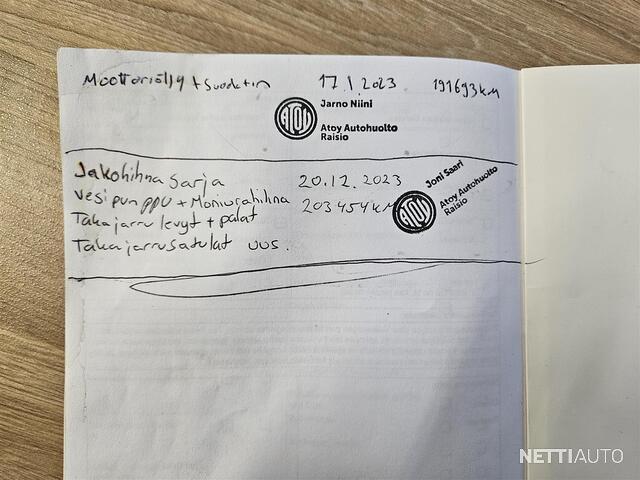 Moottoriöljy + Suodatin 17.1.2023 191693KM
ATOY
Jarno Niini
Atoy Autohuolto
Raisio
Jakohihna Sarja 20.12.2023
Vesipumppu + Moniurahihna 203454KM
Takajarru levyt + palat
Takajarrusatulat uus.
ATOY
Joni Saari
Atoy Autohuolto
Raisio
NETTIAUTO